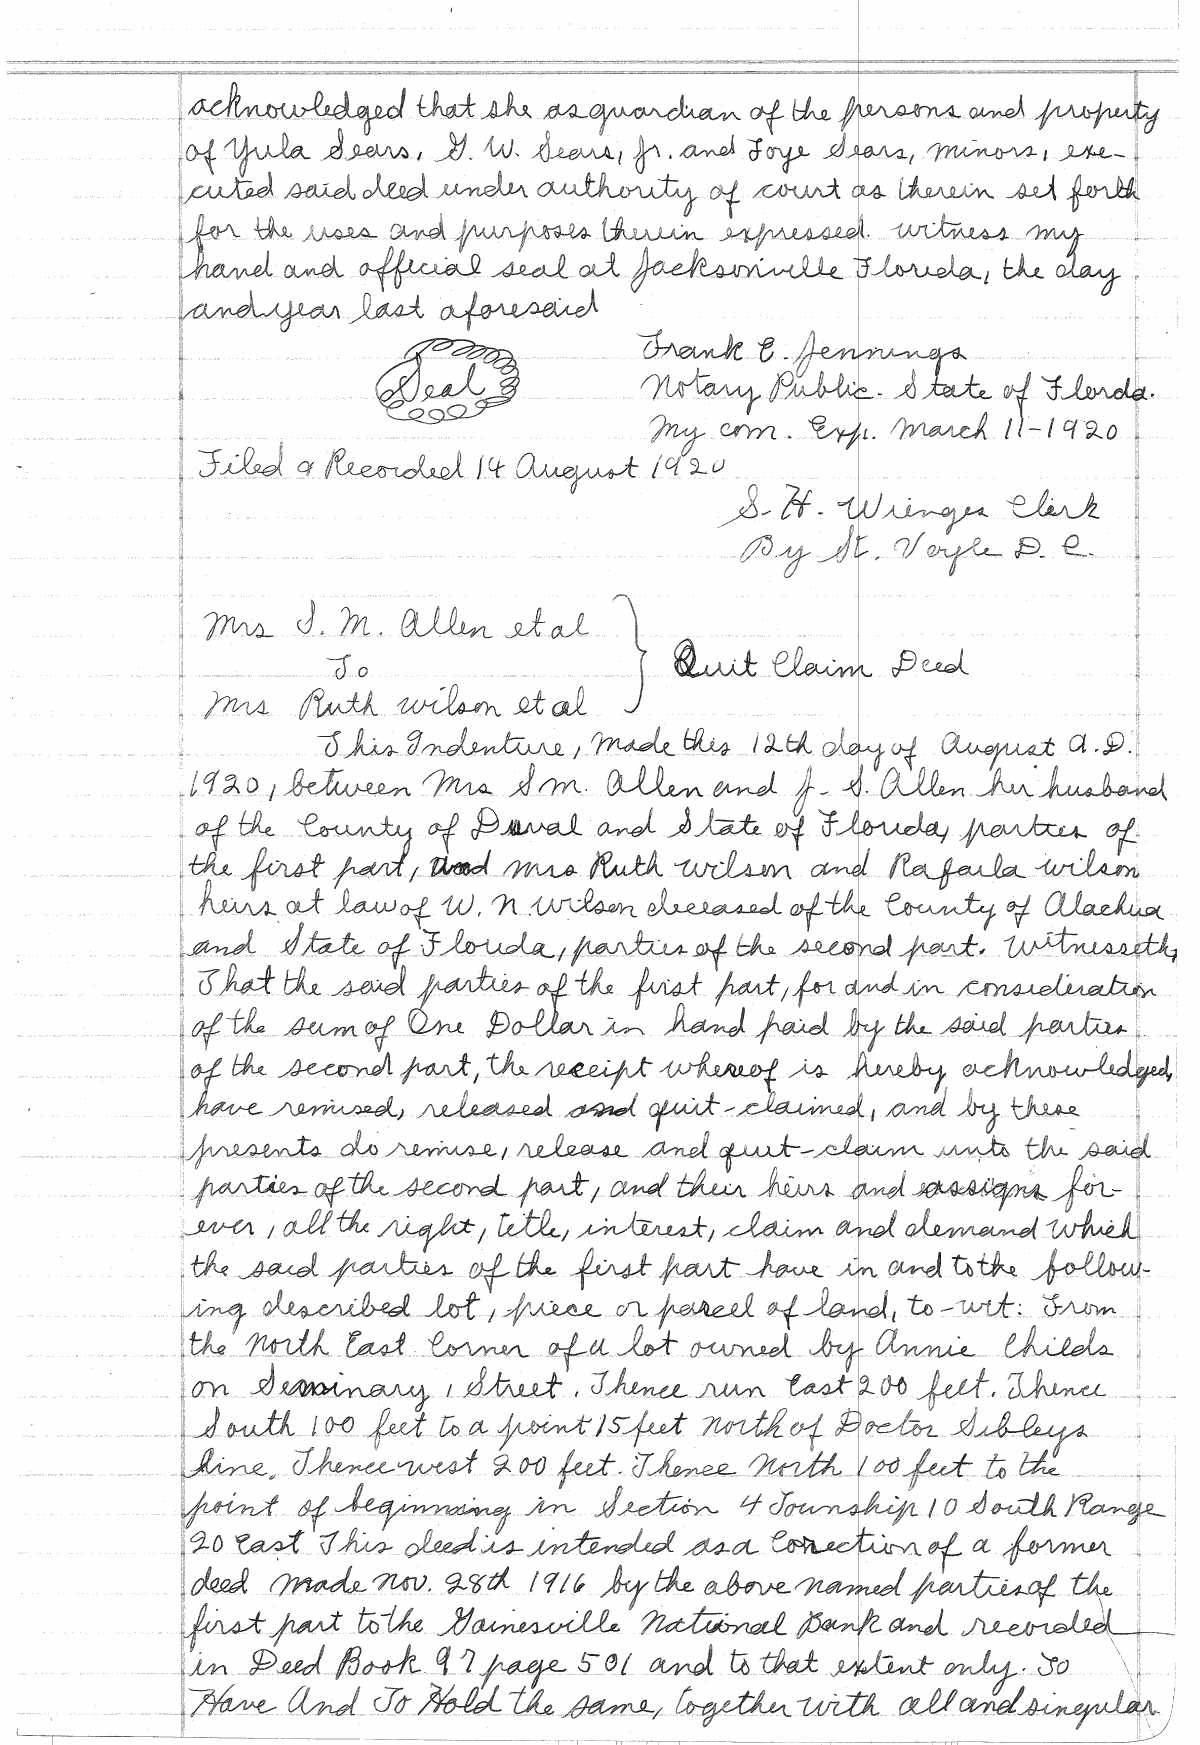 acknowledged that she as guardian of the persons and property
of Yula Sears, G. W. Sears, Jr. and Foye Sears, minors, exe-
cuted said deed under authority of court as therein set forth
for the uses and purposes therein expressed. witness my
hand and official seal at Jacksonville Florida, the day
and year last aforesaid
Frank E. Jennings
Seal
Notary Public. State of Florda.
My com. Exp. March 11-1920
Filed & Recorded 14 August 1920
S. H. Wienges Clerk
By St. Voyle D. C.
Mrs S. M. Allen et al
To
Quit Claim Deed
Mrs Ruth Wilson et al
This Indenture, Made this 12th day of August A.D.
1920, between Mrs S M. Allen and J. S. Allen her husband
of the County of Duval and State of Florida, parties of
the first part, and Mrs Ruth Wilson and Rafaela Wilson
heirs at law of W. N. Wilson deceased of the County of Alachua
and State of Florida, parties of the second part. Witnesseth,
That the said parties of the first part, for and in consideration
of the sum of One Dollar in hand paid by the said parties
of the second part, the receipt whereof is hereby acknowledged,
have remised, released and quit-claimed, and by these
presents do remise, release and quit-claim unto the said
parties of the second part, and their heirs and assigns for-
ever, all the right, title, interest, claim and demand which
the said parties of the first part have in and to the follow-
ing described lot, piece or parcel of land, to-wit: From
the North East Corner of a lot owned by Annie Childs
on Seminary, Street. Thence run East 200 feet. Thence
South 100 feet to a point 15 feet North of Doctor Sibleys
line. Thence west 200 feet. Thence North 100 feet to the
point of beginning in Section 4 Township 10 South Range
20 East This deed is intended as a Corection of a former
deed made Nov. 28th 1916 by the above named parties of the
first part to the Gainesville National Bank and recorded
in Deed Book 97 page 501 and to that extent only. To
Have And To Hold the same, together with all and singular